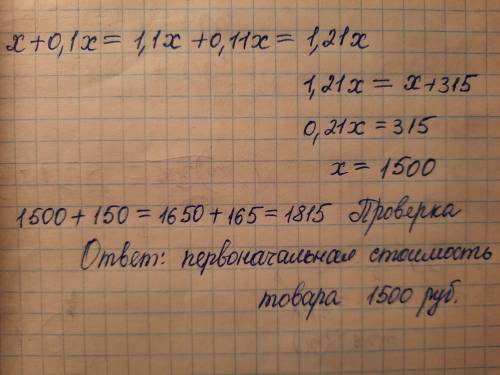 x+0,1x = 1,1x +0,11x = 1,21x
1,21x = x+315
0,21x = 315
x = 1500
1500 + 150 = 1650 + 165 = 1815 Проверка
Ответ: первоначальная стоимость
товара 1500 руб.